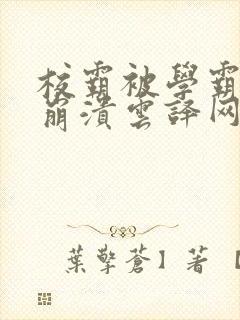 校霸被學霸
崩潰雲譯网
葉擎蒼】著【